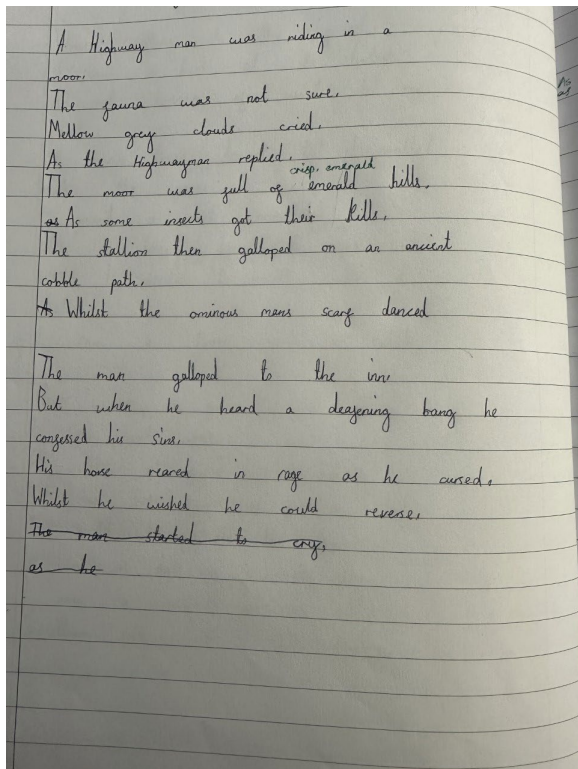 A Highway man was riding in a
moor.
The fauna was not sure.
Mellow grey clouds cried.
As the Highwayman replied.
crisp, emerald
The moor was full of emerald hills.
as As some insects got their kills.
The stallion then galloped on an ancient
cobble path.
As Whilst the ominous mans scarf danced
The man galloped to the inn.
But when he heard a deafening bang he
confessed his sins.
His horse reared in rage as he cursed.
Whilst he wished he could reverse.
The man started to cry,
as he